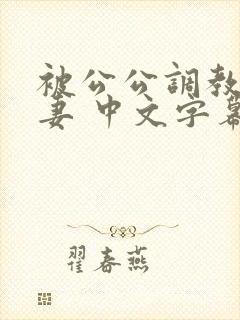 被公公調教
妻 中文字幕
翟春燕